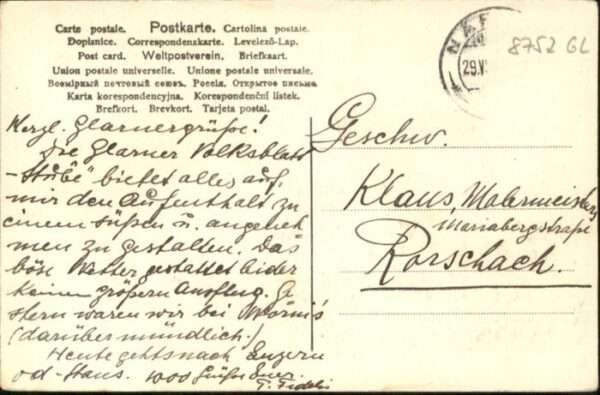 Carte postale. Postkarte. Cartolina postale.
Dopisnice. Correspondenzkarte. Levelező-Lap.
Post card. Weltpostverein. Briefkaart.
Union postale universelle. Unione postale universale.
Всемірный почтовый союзъ. Россія. Открытое письмо.
Karta korespondencyjna. Korespondenční lístek.
Brefkort. Brevkort. Tarjeta postal.
8752 GL
29.V
Herzl. Glarnergrüße!
Die Glarner Volksblatt
-Stube" bietet alles auf,
mir den Aufenthalt zu
einem süßen u. angeneh
men zu gestalten. Das
böse Wetter gestattet leider
keinen größern Ausflug. Ge
stern waren wir bei
(darüber mündlich.)
Heute gehts nach Luzern
od. Stans. 1000 Grüße Euer
Geschw.
Klaus, Malermeisters
Mariabergstraße
Rorschach.